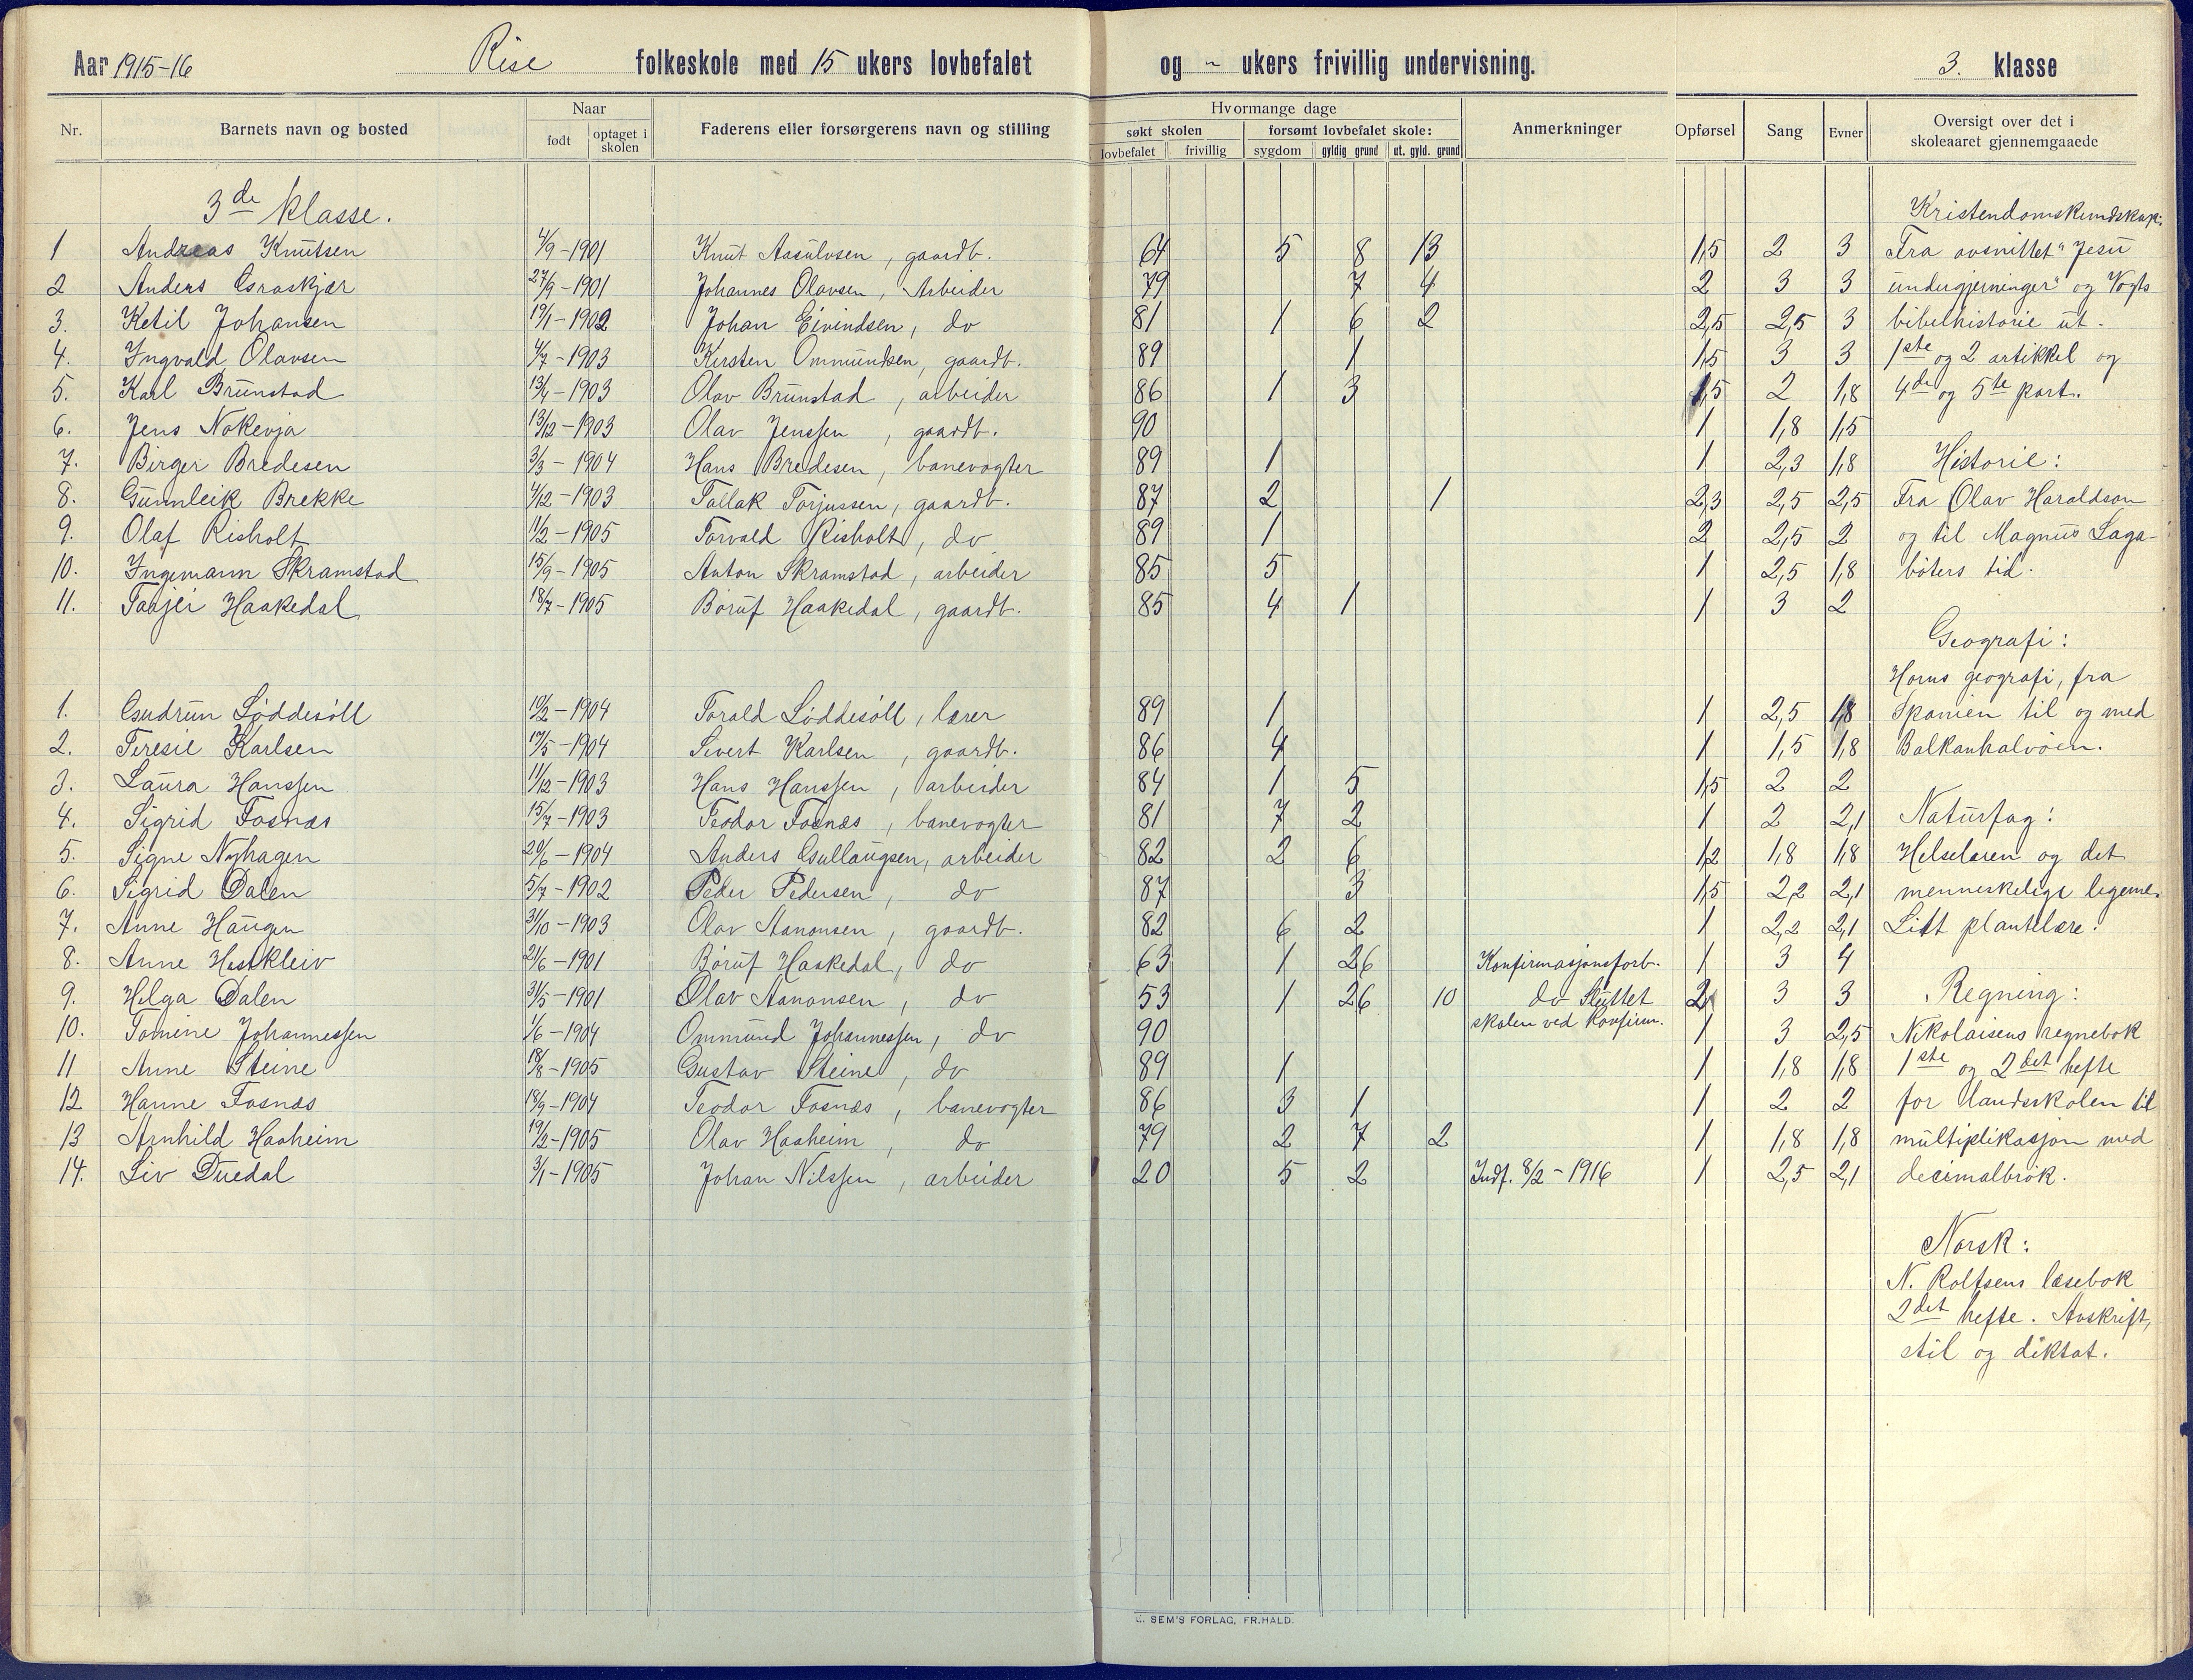 Aar 1915-16 Rise folkeskole med 15 ukers lovbefalet og - ukers frivillig undervisning. 3. klasse
Nr. Barnets navn og bosted Naar født optaget i skolen Faderens eller forsørgerens navn og stilling Hvormange dage søkt skolen lovbefalet frivillig forsømt lovbefalet skole: sygdom gyldig grund ut. gyld. grund Anmerkninger Opførsel Sang Evner Oversigt over det i skoleaaret gjennemgaaede
3de klasse. Kristendomskundskap:
1 Andreas Knutsen 4/9-1901 Knut Aasulvsen, gaardb. 64 5 8 13 1,5 2 3 Fra avsnittet "Jesu
2 Anders Graskjær 27/9-1901 Johannes Olavsen, Arbeider 79 7 4 2 3 3 undergjerninger" og Vogts
3. Ketil Johansen 19/1-1902 Johan Eivindsen, do 81 1 6 2 2,5 2,5 3 bibelhistorie ut.
4. Yngvald Olavsen 4/7-1903 Kirsten Ommundsen, gaardb. 89 1 1,5 3 3 1ste og 2 artikkel og
5. Karl Brunstad 13/4-1903 Olav Brunstad, arbeider 86 1 3 1,5 2 1,8 4de og 5te part.
6. Jens Nokevja 13/12-1903 Olav Jenssen, gaardb. 90 1 1,8 1,5
7. Birger Bredesen 3/3-1904 Hans Bredesen, banevogter 89 1 1 2,3 1,8 Historie:
8. Gunnleik Brekke 4/12-1903 Tallak Torjussen, gaardb. 87 2 1 2,3 2,5 2,5 Fra Olav Haraldson
9. Olaf Risholt 11/2-1905 Torvald Risholt, do 89 1 2 2,5 2 og til Magnus Laga-
10. Yngemann Skramstad 15/9-1905 Anton Skramstad, arbeider 85 5 1 2,5 1,8 bøters tid.
11. Taajei Haakedal 18/7-1905 Børuf Haakedal, gaardb. 85 4 1 1 3 2
Geografi:
Horns geografi, fra
1. Gudrun Løddesøll 10/2-1904 Torald Løddesøll, lærer 89 1 1 2,5 1,8 Spanien til og med
2. Teresie Karlsen 19/5-1904 Sivert Karlsen, gaardb. 86 4 1 1,5 1,8 Balkanhalvøen.
3. Laura Hanssen 11/12-1903 Hans Hanssen, arbeider 84 1 5 1,5 2 2
4. Sigrid Fosnæs 15/7-1903 Teodor Fosnæs, banevogter 81 7 2 1 2 2,1 Naturfag:
5. Signe Nyhagen 20/6-1904 Anders Gullaugsen, arbeider 82 2 6 1,2 1,8 1,8 Helselæren og det
6. Sigrid Dalen 5/7-1902 Peder Pedersen, do 87 3 1,5 2,2 2,1 menneskelige legeme.
7. Anne Haugen 31/10-1903 Olav Aanonsen, gaardb. 82 6 2 1 2,2 2,1 Litt plantelære.
8. Anne Hestkleiv 21/6-1901 Børuf Haakedal, do 63 1 26 Konfirmasjonsforb. 1 3 4
9. Helga Dalen 31/5-1901 Olav Aanonsen, do 53 1 26 10 do Sluttet skolen ved konfirm. 2 3 3 Regning:
10. Tomine Johannessen 1/6-1904 Ommund Johannessen, do 90 1 3 2,5 Nikolaisens regnebok
11 Anne Steine 18/8-1905 Gustav Steine, do 89 1 1 1,8 1,8 1ste og 2det hefte
12 Hanne Fosnæs 18/9-1904 Teodor Fosnæs, banevogter 86 3 1 1 2 2 for landsskolen til
13 Arnhild Haaheim 19/2-1905 Olav Haaheim, do 79 2 7 2 1 1,8 1,8 multiplikasjon med
14. Liv Duedal 3/1-1905 Johan Nilssen, arbeider 20 5 2 Indf. 8/2-1916 1 2,5 2,1 decimalbrøk.
Norsk:
N. Rolfsens læsebok
2det hefte. Avskrift,
stil og diktat.
SEM'S FORLAG, FR.HALD.